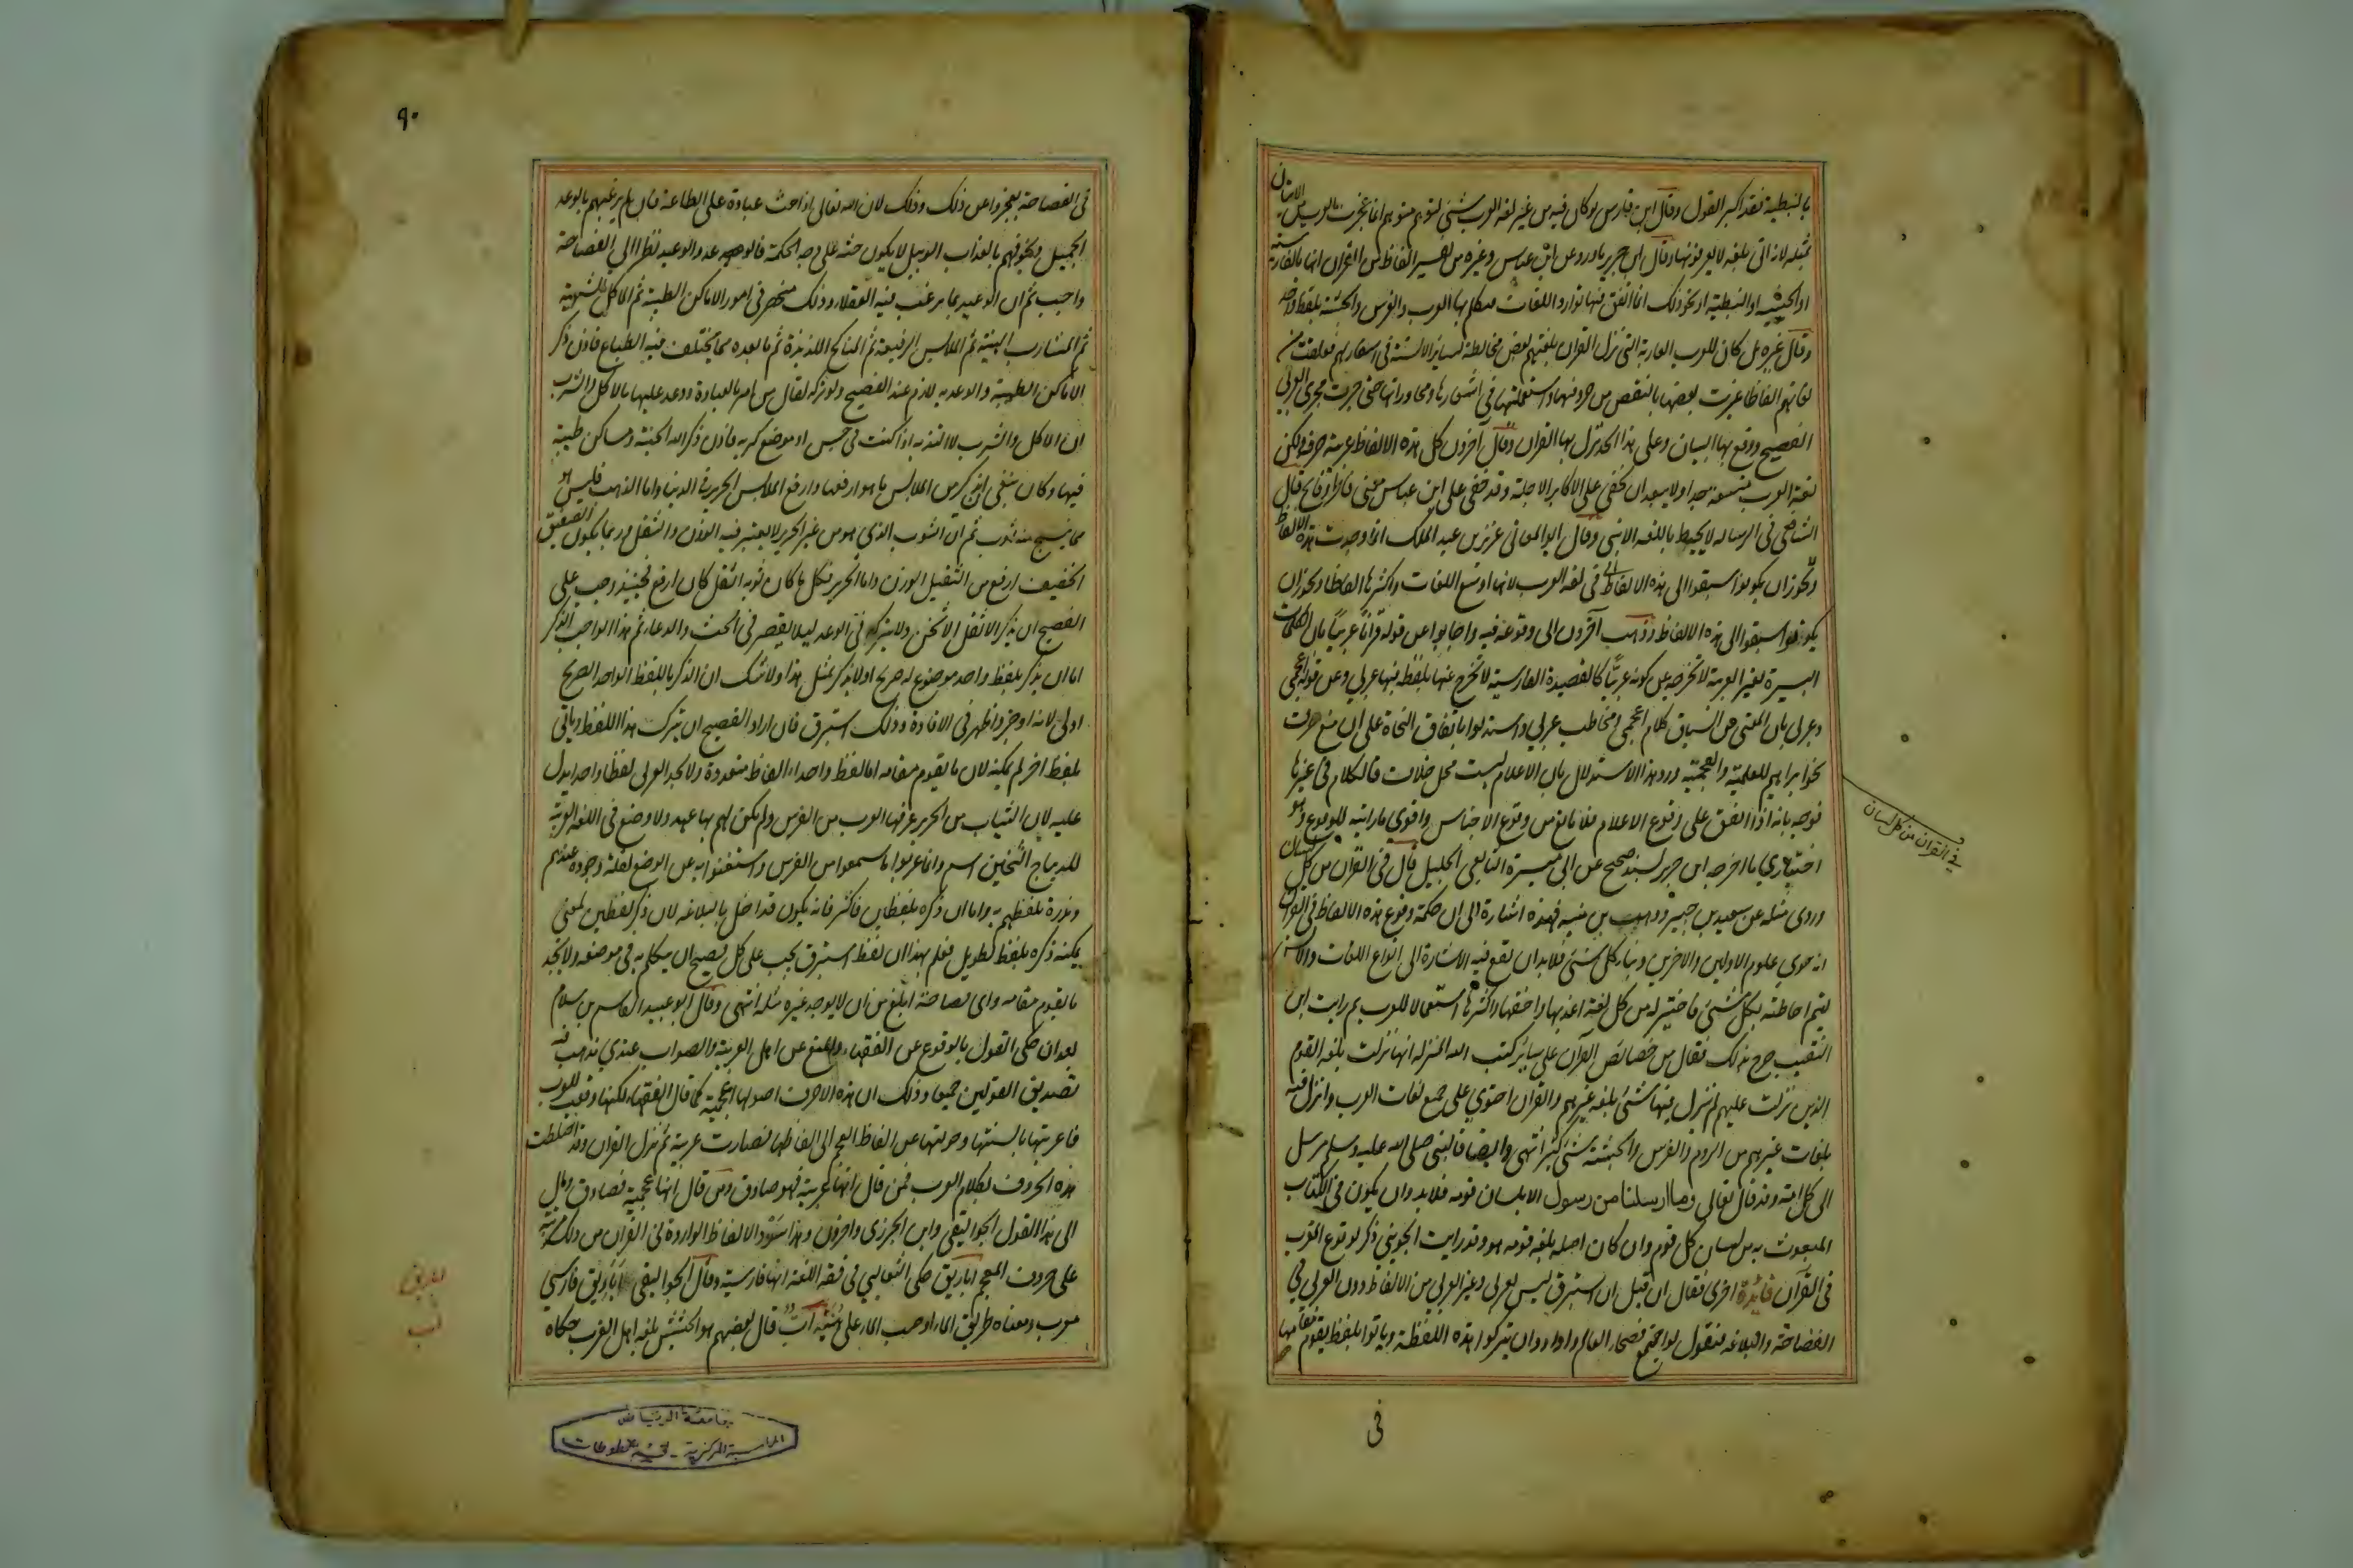 بالنبطية فقد اكبر القول وقال ابن فارس لو كان فيه من غير لغة العرب شئ لتوهم متوهم انما عجزت العرب عن الاتيان
بمثله لانه اتى بلغة لا يعرفونها وقال ابن جرير ما ورد عن ابن عباس وغيره من تفسير الفاظ من القران انها بالفارسية
او الحبشية او النبطية او نحو ذلك انما اتفق فيها توارد اللغات فتكلم بها العرب والفرس والحبشة بلفظ واحد
وقال غيره بل كان للعرب العاربة التي نزل القران بلغتهم بعض مخالطة لسائر الالسنة في اسفارهم فعلقت من
لغاتهم الفاظا غيرت بعضها بالنقص من حروفها واستعملتها في اشعارها ومحاوراتها حتى جرت مجرى العربي
الفصيح ووقع بها البيان وعلى هذا الحد نزل بها القران وقال آخرون كل هذه الالفاظ عربية صرفة ولكن
لغة العرب متسعة جدا ولا يبعد ان تخفى على الاكابر الاجلة وقد خفى على ابن عباس معنى فاطر وفاتح قال
الشافعي في الرسالة لا يحيط باللغة الا نبي وقال ابو المعالي عزيزي بن عبد الملك انما وجدت هذه الالفاظ
في لغة العرب لانها اوسع اللغات واكثرها الفاظا ويجوز ان
يكونوا سبقوا الى هذه الالفاظ وذهب آخرون الى وقوعه فيه واجابوا عن قوله قرآنا عربيا بان الكلمات
اليسيرة بغير العربية لا تخرجه عن كونه عربيّا كالقصيدة الفارسية لا تخرج عنها بلفظة فيها عربي وعن قوله اعجمي
وعربي بان المعنى من السياق كلام اعجمي ومخاطب عربي واستدلوا باتفاق النحاة على ان منع صرف
نحو ابراهيم للعلمية والعجمية ورد هذا الاستدلال بان الاعلام ليست محل خلاف فالكلام في غيرها
فوجه بانه اذا اتفق على وقوع الاعلام فلا مانع من وقوع الاجناس واقوى ما رايته للوقوع وهو
اختياري ما اخرجه ابن جرير بسند صحيح عن ابي ميسرة التابعي الجليل قال في القرآن من كل لسان
وروى مثله عن سعيد بن جبير ووهب بن منبه فهذه اشارة الى ان حكمة وقوع هذه الالفاظ في القران
انه حوى علوم الاولين والاخرين ونباء كل شئ فلا بد ان تقع فيه الاشارة الى انواع اللغات والالسن
ليتم احاطته بكل شئ فاختير له من كل لغة اعذبها واخفها واكثرها استعمالا للعرب ثم رايت ابن
النقيب صرح بذلك فقال من خصائص القرآن على سائر كتب الله المنزلة انها نزلت بلغة القوم
الذين نزلت عليهم لم ينزل فيها شئ بلغة غيرهم والقران احتوى على جميع لغات العرب وانزل فيه
بلغات غيرهم من الروم والفرس والحبشة شئ كثير انتهى وايضا فالنبي صلى الله عليه وسلم مرسل
الى كل امة وقد قال تعالى وما ارسلنا من رسول الا بلسان قومه فلا بد وان يكون في الكتاب
المبعوث به من لسان كل قوم وان كان اصله بلغة قومه هو وقد رايت الجويني ذكر لوقوع المعرب
في القرآن فائدة اخرى فقال ان قيل ان استبرق ليس بعربي وغير العربي من الالفاظ دون العربي في
الفصاحة والبلاغة فنقول لو اجتمع فصحاء العالم وارادوا ان يتركوا هذه اللفظة وياتوا بلفظ يقوم مقامها
في القران من كل لسان
في
٩٠
في الفصاحة لعجزوا عن ذلك وذلك لان الله تعالى اذا حث عباده على الطاعة فان لم يرغبهم بالوعد
الجميل ويخوفهم بالعذاب الوبيل لا يكون حثه على وجه الحكمة فالوعد والوعيد نظرا الى الفصاحة
واجب ثم ان الوعد بما يرغب فيه العقلاء وذلك منحصر في امور الاماكن الطيبة ثم الماكل الشهية
ثم المشارب الهنية ثم الملابس الرفيعة ثم المناكح اللذيذة ثم ما بعده مما يختلف فيه الطباع فاذن ذكر
الاماكن الطيبة والوعد به لازم عند الفصيح ولو تركه لقال من امر بالعبادة ووعد عليها بالاكل والشرب
ان الاكل والشرب لا التذ به اذا كنت في حبس او موضع كريه فاذن ذكر الله الجنة ومساكن طيبة
فيها وكان ينبغي ان يذكر من الملابس ما هو ارفعها وارفع الملابس الحرير في الدنيا واما الذهب فليس هو
مما ينسج منه ثوب ثم ان الثوب الذي هو من غير الحرير لا يعتبر فيه الوزن والثقل وربما يكون الصفيق
الخفيف ارفع من الثقيل الوزن واما الحرير فكل ما كان ثوبه اثقل كان ارفع فحينئذ وجب على
الفصيح ان يذكر الاثقل الاثخن ولا يتركه في الوعد ليلا يقصر في الحث والدعاء ثم هذا الواجب الذكر
اما ان يذكر بلفظ واحد موضوع له صريح او لا يذكر بمثل هذا ولا شك ان الذكر باللفظ الواحد الصريح
اولى لانه اوجز واظهر في الافادة وذلك استبرق فان اراد الفصيح ان يترك هذا اللفظ وياتي
بلفظ اخر لم يمكنه لان ما يقوم مقامه اما لفظ واحد او الفاظ متعددة ولا يجد العربي لفظا واحدا يدل
عليه لان الثياب من الحرير عرفها العرب من الفرس ولم يكن لهم بها عهد ولا وضع في اللغة العربية
للديباج الثخين اسم وانما عربوا ما سمعوا من الفرس واستغنوا به عن الوضع لقلة وجوده عندهم
وندرة تلفظهم به واما ان ذكره بلفظين فاكثر فانه يكون قد اخل بالبلاغة لان ذكر لفظين لمعنى
يمكنه ذكره بلفظ تطويل فعلم بهذا ان لفظ استبرق يجب على كل فصيح ان يتكلم به في موضعه ولا يجد
ما يقوم مقامه واي فصاحة ابلغ من ان لا يوجد غيره مثله انتهى وقال ابو عبيد القاسم بن سلام
بعد ان حكى القول بالوقوع عن الفقهاء والمنع عن اهل العربية والصواب عندي مذهب فيه
تصديق القولين جميعا وذلك ان هذه الاحرف اصولها اعجمية كما قال الفقهاء لكنها وقعت للعرب
فاعربتها بالسنتها وحولتها عن الفاظ العجم الى الفاظها فصارت عربية ثم نزل القران وقد اختلطت
هذه الحروف بكلام العرب فمن قال انها عربية فهو صادق ومن قال انها عجمية فصادق ومال
الى هذا القول الجواليقي وابن الجزري واخرون وهذا سرد الالفاظ الواردة في القران من ذلك مرتبة
على حروف المعجم اباريق حكى الثعالبي في فقه اللغة انها فارسية وقال الجواليقي اباريق فارسي
معرب ومعناه طريق الماء او صب الماء على هينة ابّ قال بعضهم هو الحشيش بلغة اهل الغرب حكاه
اباريق
اب
جامعة الرياض
المكتبة المركزية - قسم المخطوطات